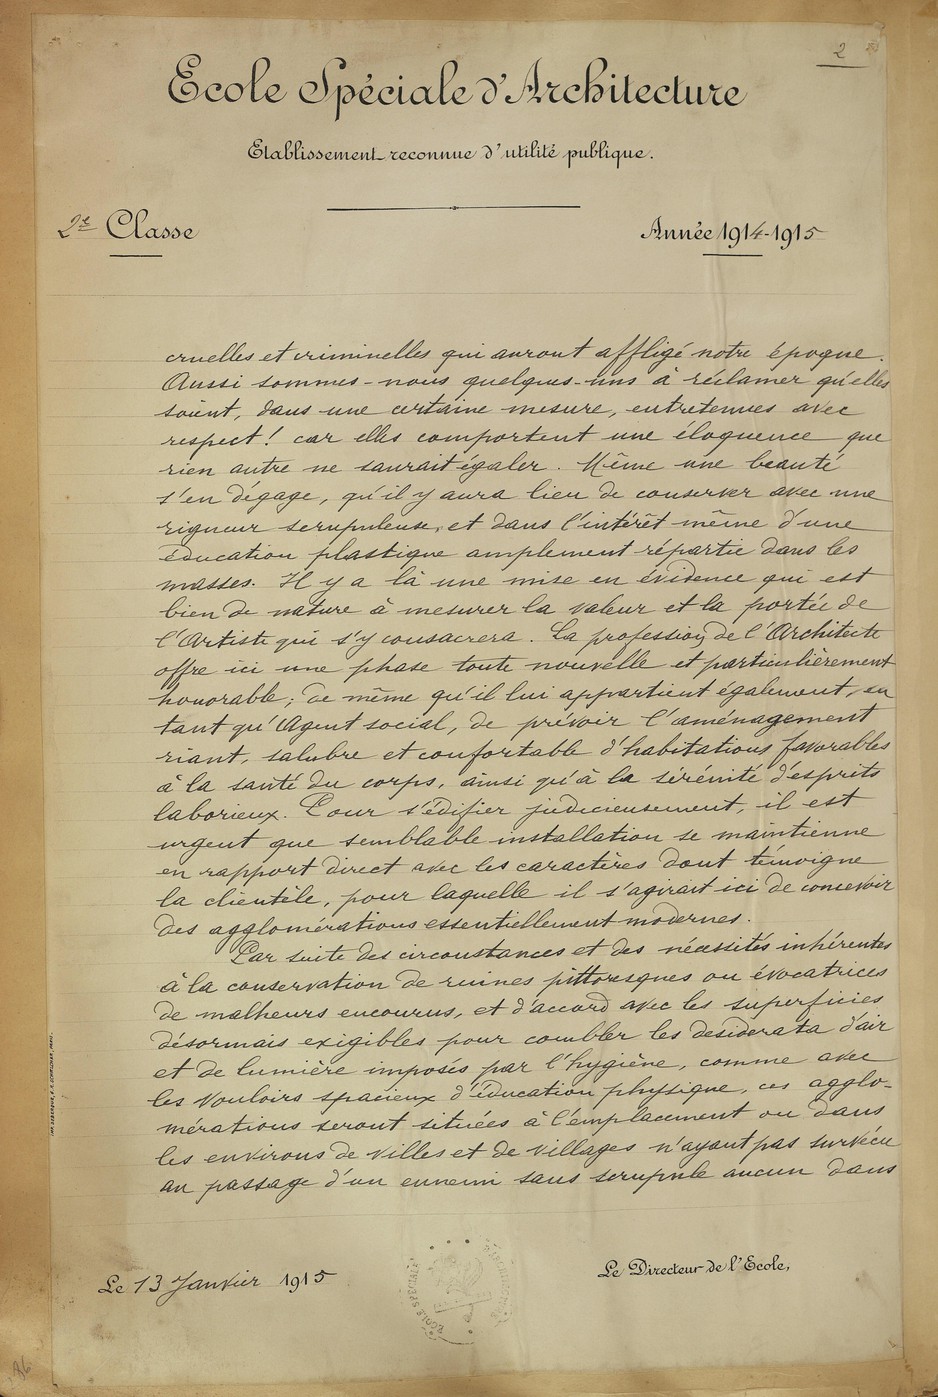 2
Ecole Spéciale d'Architecture
Etablissement reconnue d'utilité publique.
2e Classe
Année 1914-1915
cruelles et criminelles qui auront affligé notre époque.
Aussi sommes-nous quelques-uns à réclamer qu'elles
soient, dans une certaine mesure, entretenues avec
respect! car elles comportent une éloquence que
rien autre ne saurait égaler. Même une beauté
s'en dégage, qu'il y aura lieu de conserver avec une
rigueur scrupuleuse, et dans l'intérêt même d'une
éducation plastique amplement répartie dans les
masses. Il y a là une mise en évidence qui est
bien de nature à mesurer la valeur et la portée de
l'Artiste qui s'y consacrera. La profession de l'Architecte
offre ici une phase toute nouvelle et particulièrement
honorable; de même qu'il lui appartient également, en
tant qu'Agent social, de prévoir l'aménagement
riant, salubre et confortable d'habitations favorables
à la santé du corps, ainsi qu'à la sérénité d'esprits
laborieux. Pour s'édifier judicieusement, il est
urgent que semblable installation se maintienne
en rapport direct avec les caractères dont témoigne
la clientèle, pour laquelle il s'agirait ici de concevoir
des agglomérations essentiellement modernes.
Par suite des circonstances et des nécessités inhérentes
à la conservation de ruines pittoresques ou évocatrices
de malheurs encourus, et d'accord avec les superficies
désormais exigibles pour combler les desiderata d'air
et de lumière imposés par l'hygiène, comme avec
les vouloirs spacieux d'éducation physique, ces agglo-
mérations seront situées à l'emplacement ou dans
les environs de villes et de villages n'ayant pas survécu
au passage d'un ennemi sans scrupule aucun dans
Le 13 Janvier 1915
Le Directeur de l'Ecole,
ECOLE SPECIALE